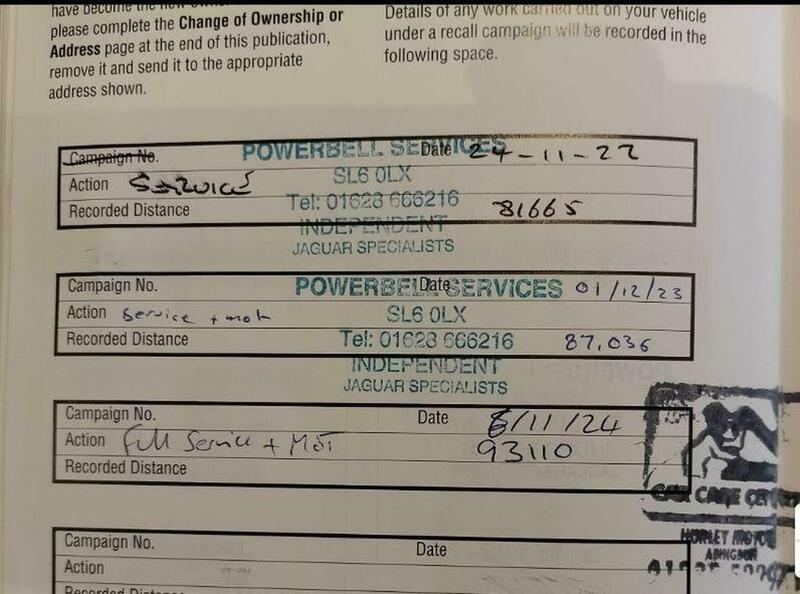 have become the new owner
please complete the Change of Ownership or
Address page at the end of this publication,
remove it and send it to the appropriate
address shown.
Details of any work carried out on your vehicle
under a recall campaign will be recorded in the
following space.
Campaign No.
POWERBELL SERVICES
Date 24-11-22
Action Service
SL6 0LX
Recorded Distance
Tel: 01628 666216
81665
INDEPENDENT
JAGUAR SPECIALISTS
Campaign No.
POWERBELL SERVICES
Date 01/12/23
Action Service + mot
SL6 0LX
Recorded Distance
Tel: 01628 666216
87,036
INDEPENDENT
JAGUAR SPECIALISTS
Campaign No.
Date 8/11/24
Action Full Service + MOT
93110
Recorded Distance
CAR CARE
Campaign No.
Date
Action
Recorded Distance